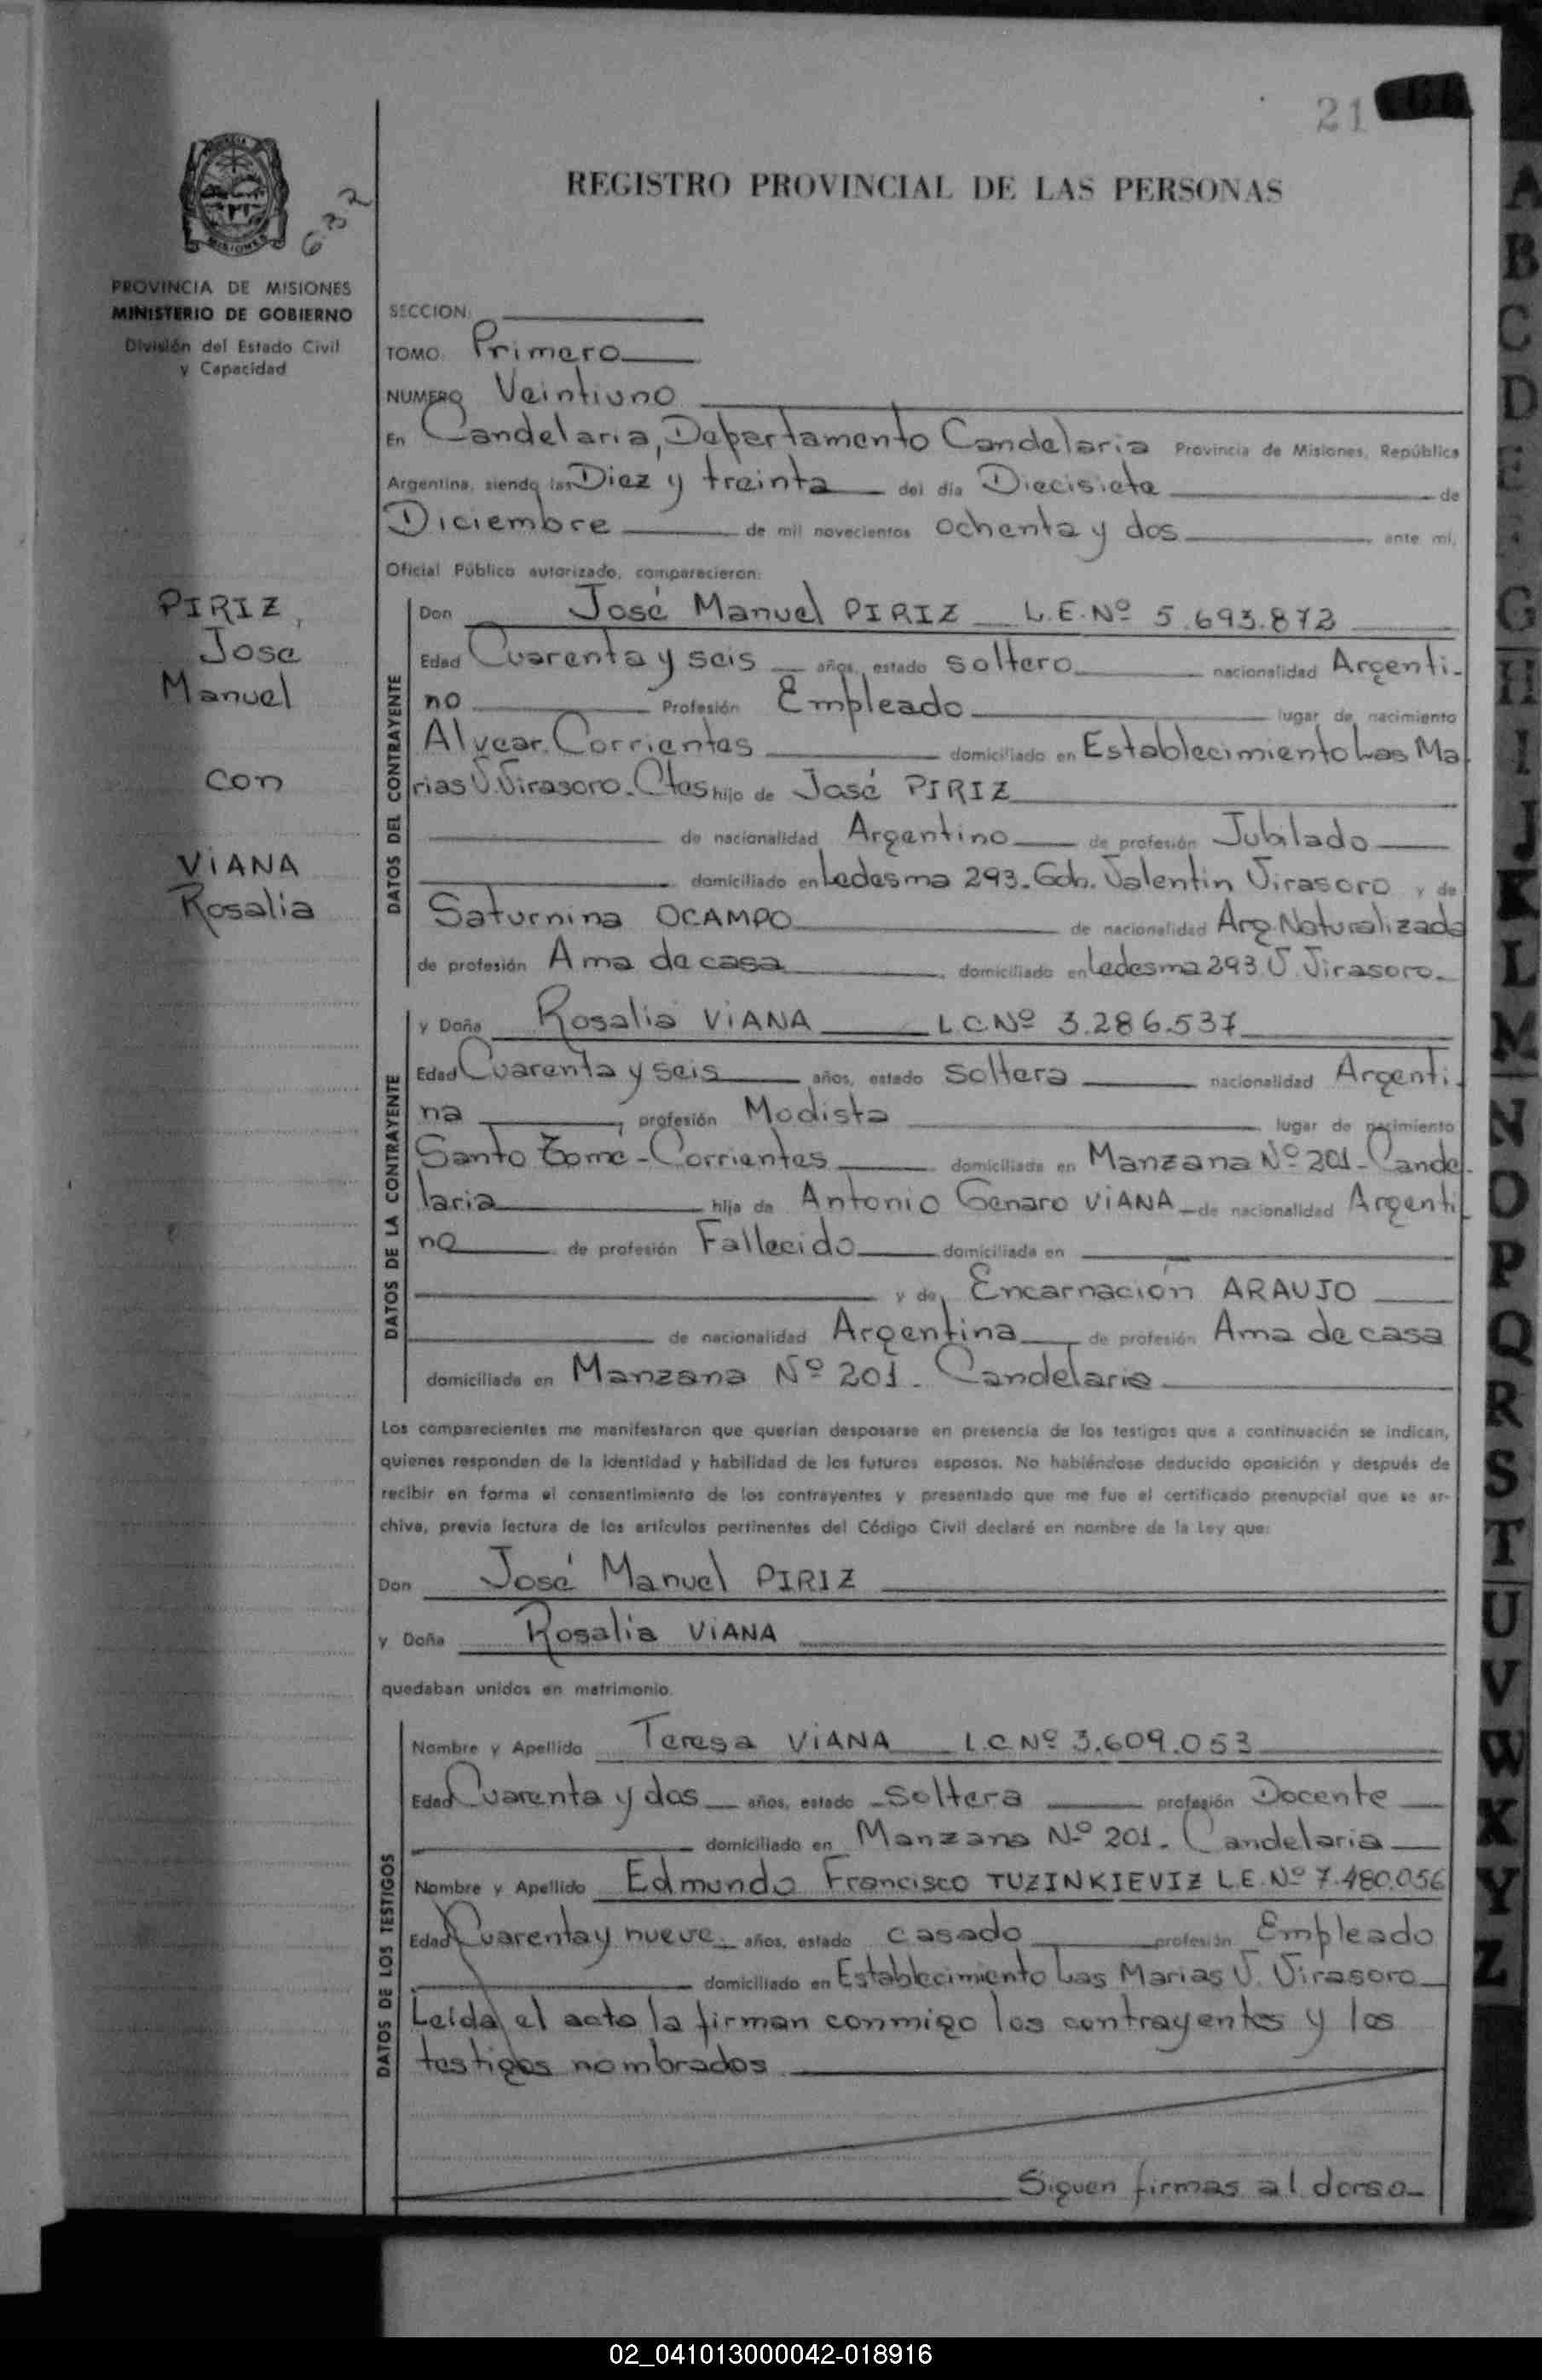 21
REGISTRO PROVINCIAL DE LAS PERSONAS
PROVINCIA DE MISIONES
MINISTERIO DE GOBIERNO
División del Estado Civil
y Capacidad
632
PIRIZ,
José
Manuel
con
VIANA
Rosalia
SECCION:
TOMO: Primero
NUMERO Veintiuno
En Candelaria, Departamento Candelaria Provincia de Misiones, República
Argentina, siendo las Diez y treinta del día Diecisiete de
Diciembre de mil novecientos ochenta y dos ante mí,
Oficial Público autorizado, comparecieron:
DATOS DEL CONTRAYENTE
Don José Manuel PIRIZ L.E.Nº 5.693.872
Edad Cuarenta y seis años, estado soltero nacionalidad Argenti-
no Profesión Empleado lugar de nacimiento
Alvear. Corrientes domiciliado en Establecimiento Las Ma
rias V. Virasoro. Ctes hijo de José PIRIZ
de nacionalidad Argentino de profesión Jubilado
domiciliado en Ledesma 293. Gdor. Valentin Virasoro y de
Saturnina OCAMPO de nacionalidad Arg. Naturalizada
de profesión Ama de casa domiciliada en Ledesma 293 V. Virasoro.
DATOS DE LA CONTRAYENTE
y Doña Rosalia VIANA L.C.Nº 3.286.537
Edad Cuarenta y seis años, estado soltera nacionalidad Argenti-
na profesión Modista lugar de nacimiento
Santo Tomé - Corrientes domiciliada en Manzana Nº 201 - Cande-
laria hija de Antonio Genaro VIANA de nacionalidad Argenti-
no de profesión Fallecido domiciliada en
y de Encarnación ARAUJO
de nacionalidad Argentina de profesión Ama de casa
domiciliada en Manzana Nº 201. Candelaria
Los comparecientes me manifestaron que querían desposarse en presencia de los testigos que a continuación se indican,
quienes responden de la identidad y habilidad de los futuros esposos. No habiéndose deducido oposición y después de
recibir en forma el consentimiento de los contrayentes y presentado que me fue el certificado prenupcial que se ar-
chiva, previa lectura de los artículos pertinentes del Código Civil declaré en nombre de la Ley que:
Don José Manuel PIRIZ
y Doña Rosalia VIANA
quedaban unidos en matrimonio.
DATOS DE LOS TESTIGOS
Nombre y Apellido Teresa VIANA L.C.Nº 3.609.053
Edad Cuarenta y dos años, estado Soltera profesión Docente
domiciliado en Manzana Nº 201. Candelaria
Nombre y Apellido Edmundo Francisco TUZINKIEVIZ L.E.Nº 7.480.056
Edad Cuarenta y nueve años, estado casado profesión Empleado
domiciliado en Establecimiento Las Marias V. Virasoro
Leída el acta la firman conmigo los contrayentes y los
testigos nombrados
Siguen firmas al dorso
A
B
C
D
E
G
H
I
J
K
L
M
N
O
P
Q
R
S
T
U
V
W
X
Y
Z
02_041013000042-018916